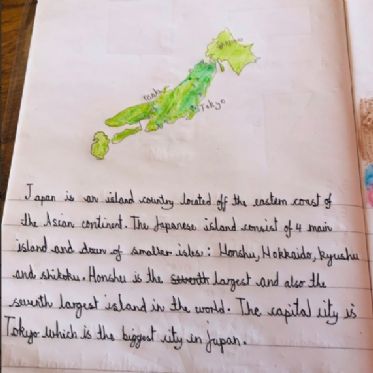 Tokyo
Japan is an island country located off the eastern coast of
the Asian continent. The Japanese island consist of 4 main
island and of smaller isles: Honshu, Hokkaido, kyushu
and shikoku. Honshu is the largest and also the
seventh largest island in the world. The capital city is
Tokyo which is the biggest city in japan.